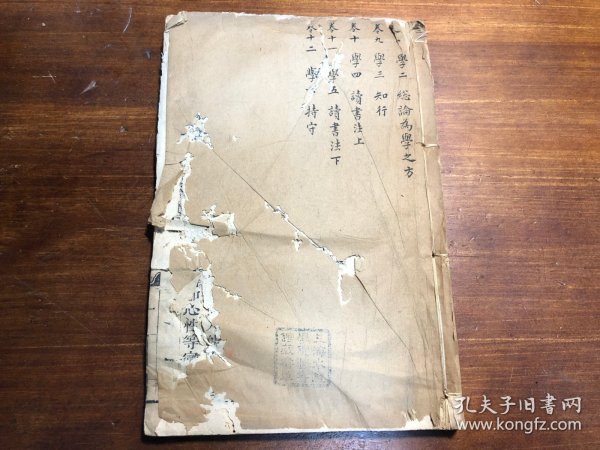 學二 總論為學之方
卷九 學三 知行
卷十 學四 讀書法上
卷十一 學五 讀書法下
卷十二 學 持守
心性等
孔夫子旧书网
www.kongfz.com